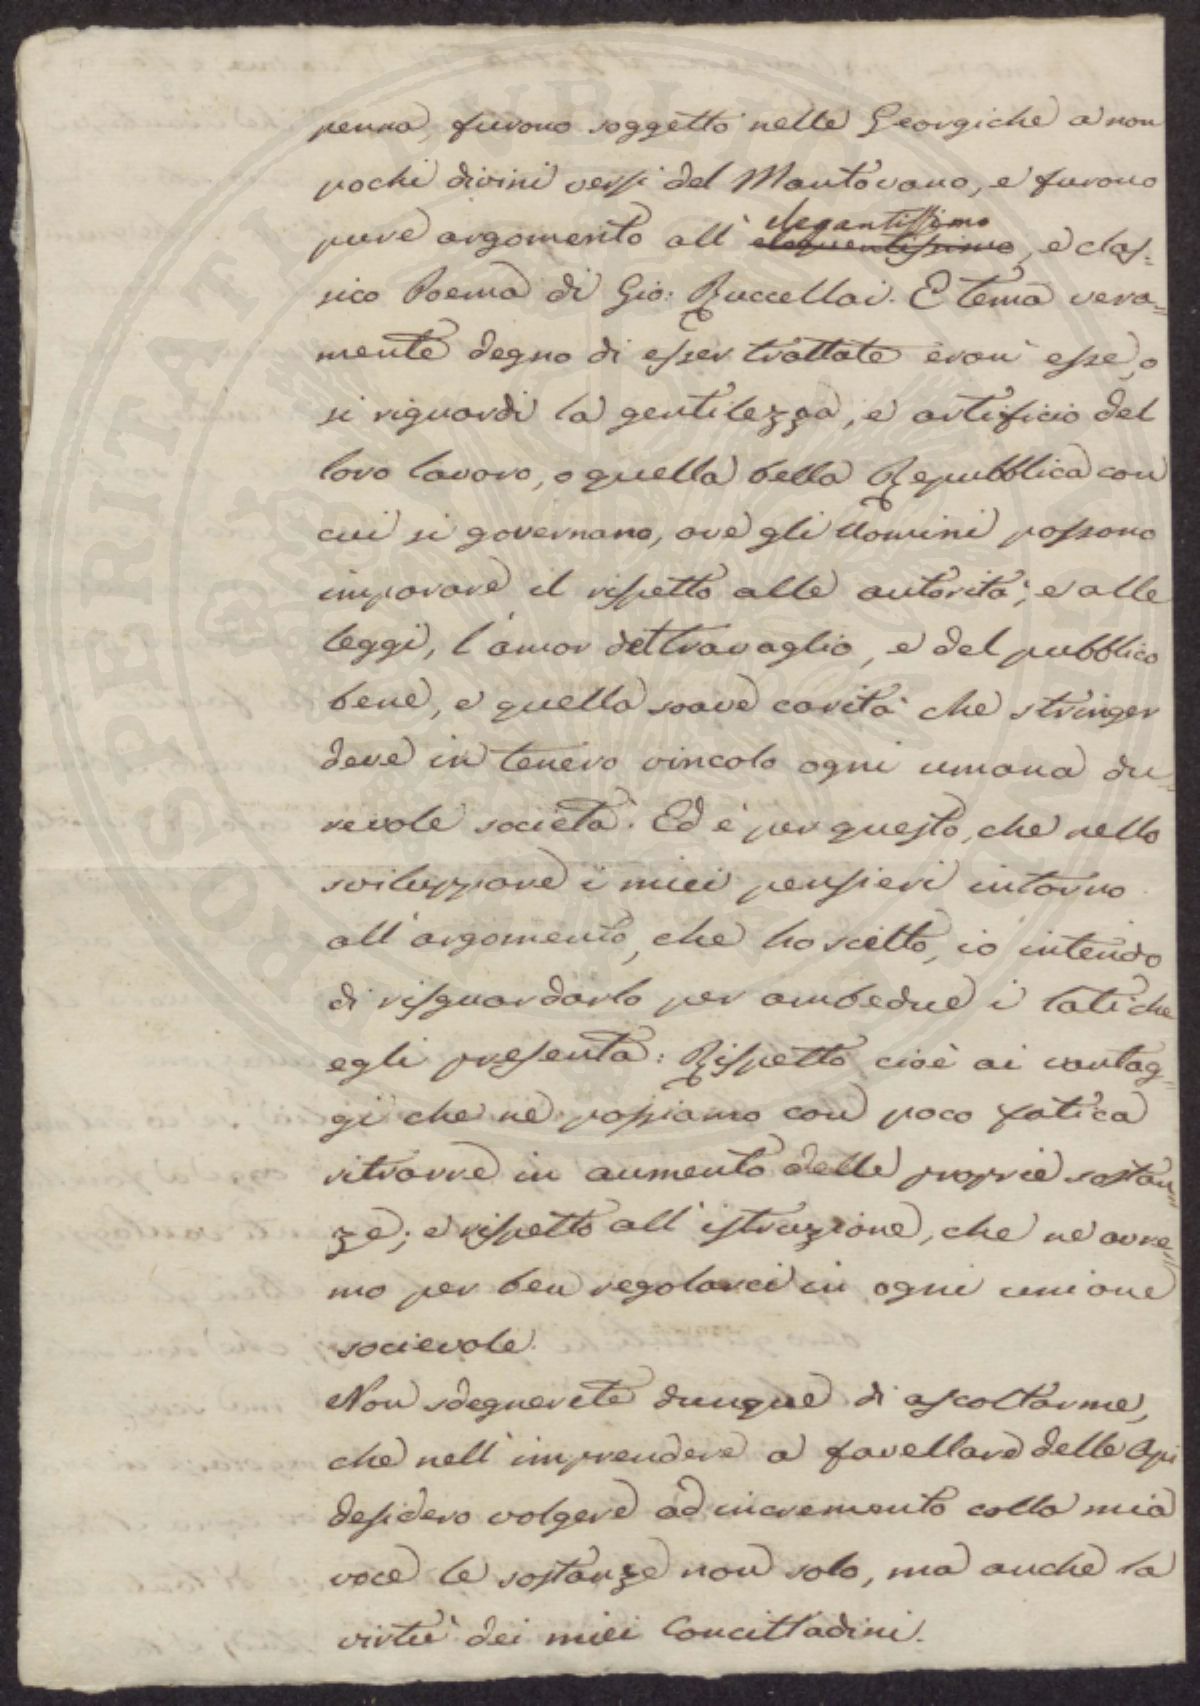 penna, furono soggetto nelle Georgiche a non
pochi divini versi del Mantovano, e furono
elegantissimo
pure argomento all' eloquentissimo, e clas=
sico Poema di Gio: Ruccellai. E tema vera=
mente degno di esser trattate eran' esse, o
si riguardi la gentilezza, e artificio del
loro lavoro, o quella bella Repubblica con
cui si governano, ove gli Uomini possono
imparare il rispetto alle autorità, e alle
leggi, l'amor del travaglio, e del pubblico
bene, e quella soave carità che stringer
deve in tenero vincolo ogni umana du=
revole società. Ed è per questo, che nello
sviluppare i miei pensieri intorno
all'argomento, che ho scelto, io intendo
di risguardarlo per ambedue i lati che
egli presenta: Rispetto cioè ai vantag=
gi che ne possiamo con poco fatica
ritrarre in aumento delle proprie sostan=
ze; e rispetto all'istruzione, che ne avre=
mo per ben regolarci in ogni unione
socievole.
Non sdegnerete dunque di ascoltarme,
che nell'imprendere a favellare delle Api
desidero volgere ad incremento colla mia
voce le sostanze non solo, ma anche la
virtù dei miei Concittadini.
PROSPERITATI PUBLICAE